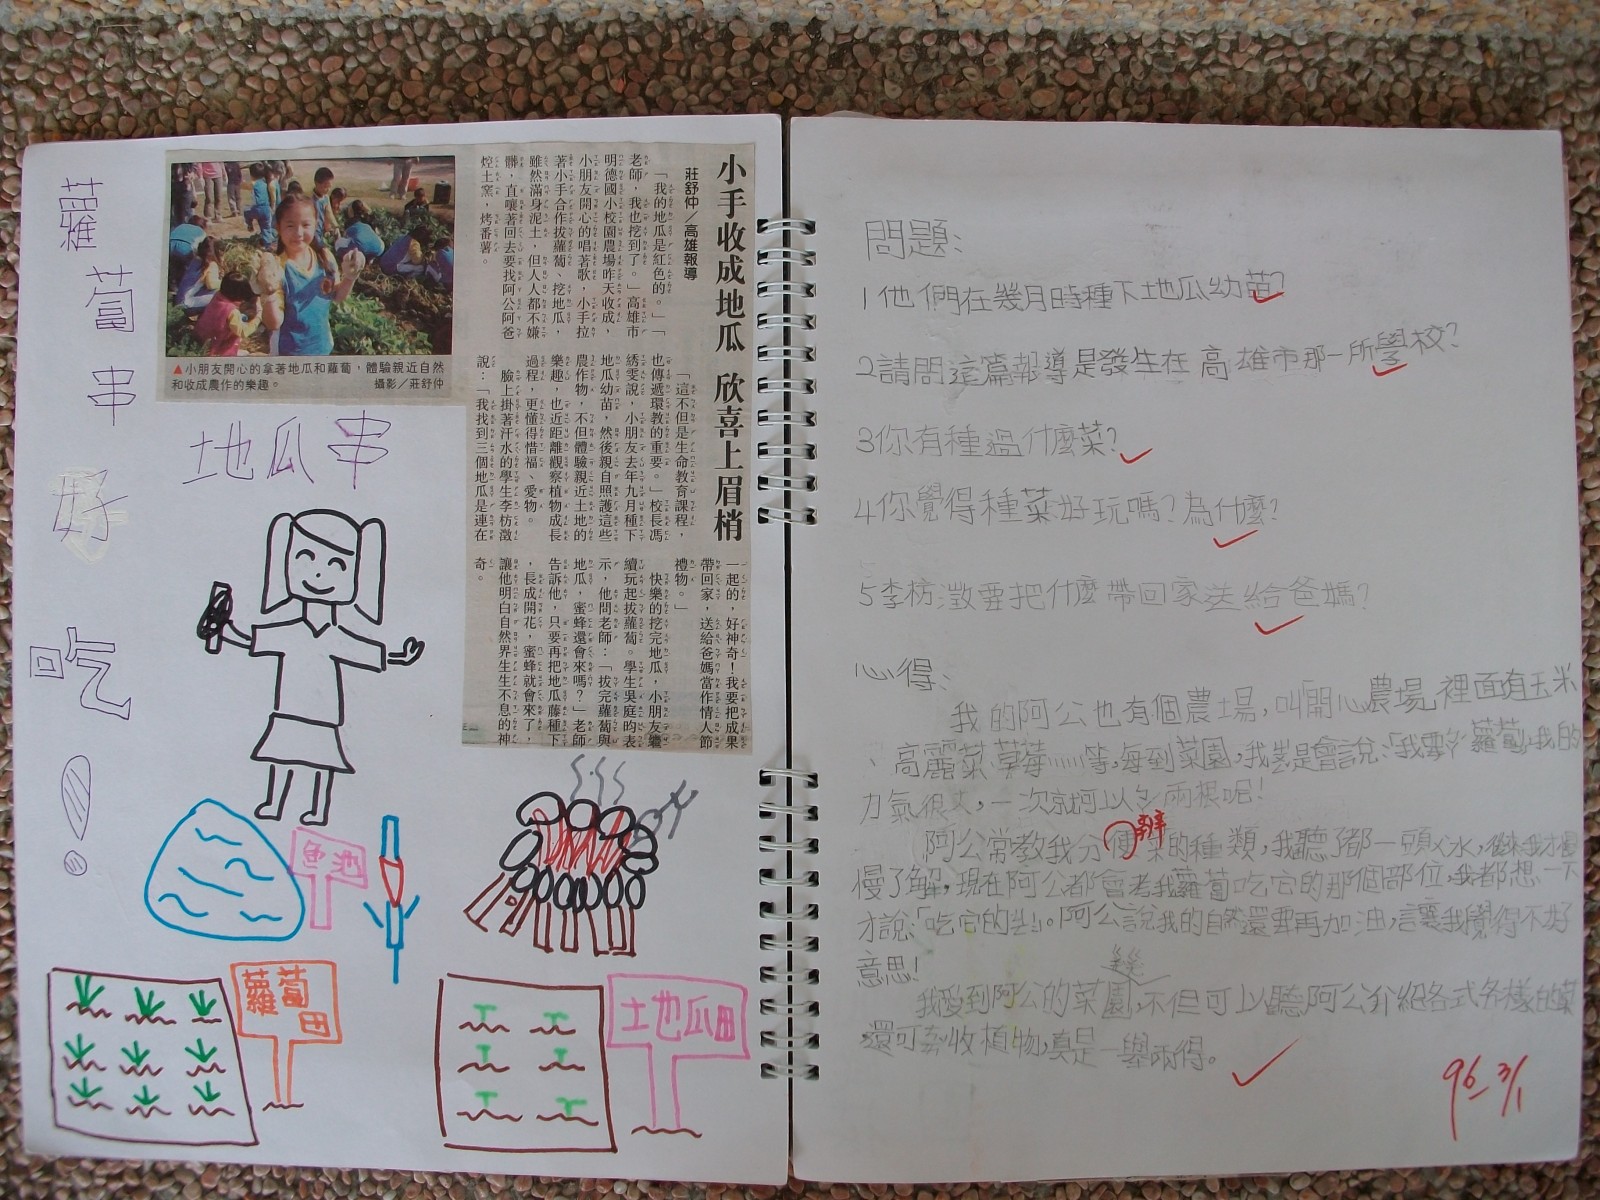 蘿蔔串好吃!
地瓜串
小手收成地瓜 欣喜上眉梢
莊舒仲／高雄報導
「我的地瓜是紅色的。」「
老師，我也挖到了。」高雄市
明德國小校園農場昨天收成，
小朋友開心的唱著歌，小手拉
著小手合作拔蘿蔔、挖地瓜，
雖然滿身泥土，但人人都不嫌
髒，直嚷著回去要找阿公阿爸
焢土窯，烤番薯。
「這不但是生命教育課程，
也傳遞環教的重要。」校長馮
綉雯說，小朋友去年九月種下
地瓜幼苗，然後親自照護這些
農作物，不但體驗親近土地的
樂趣，也近距離觀察植物成長
過程，更懂得惜福、愛物。
臉上掛著汗水的學生李枋澂
說：「我找到三個地瓜是連在
一起的，好神奇！我要把成果
帶回家，送給爸媽當作情人節
禮物。」
快樂的挖完地瓜，小朋友繼
續玩起拔蘿蔔。學生吳庭昀表
示，他問老師：「拔完蘿蔔與
地瓜，蜜蜂還會來嗎？」老師
告訴他，只要再把地瓜藤種下
，長成開花，蜜蜂就會來了，
讓他明白自然界生生不息的神
奇。
▲小朋友開心的拿著地瓜和蘿蔔，體驗親近自然
和收成農作的樂趣。 攝影／莊舒仲
魚池
蘿蔔田
土地瓜田
問題:
1他們在幾月時種下地瓜幼苗?
2請問這篇報導是發生在高雄市那一所學校?
3你有種過什麼菜?
4你覺得種菜好玩嗎?為什麼?
5李枋澂要把什麼帶回家送給爸媽?
心得:
我的阿公也有個農場,叫「開心農場」,裡面有玉米
、高麗菜、草莓……等,每到菜園,我就是會說:「我要ㄅㄚˊ蘿蔔」,我的
力氣很大,一次就可以ㄅㄚˊ兩根呢!
阿公常教我分辨菜的種類,我聽了都一頭ㄨ水,後來我才慢
慢了解,現在阿公都會考我蘿蔔吃它的那個部位,我都想一下
才說:「吃它的ㄓㄧㄥ」。阿公說我的自然還要再加油,讓我覺得不好
意思!
我愛到阿公的菜園,不但可以聽阿公介紹各式各樣的菜
還可以收植物,真是一舉兩得。
96 3/1